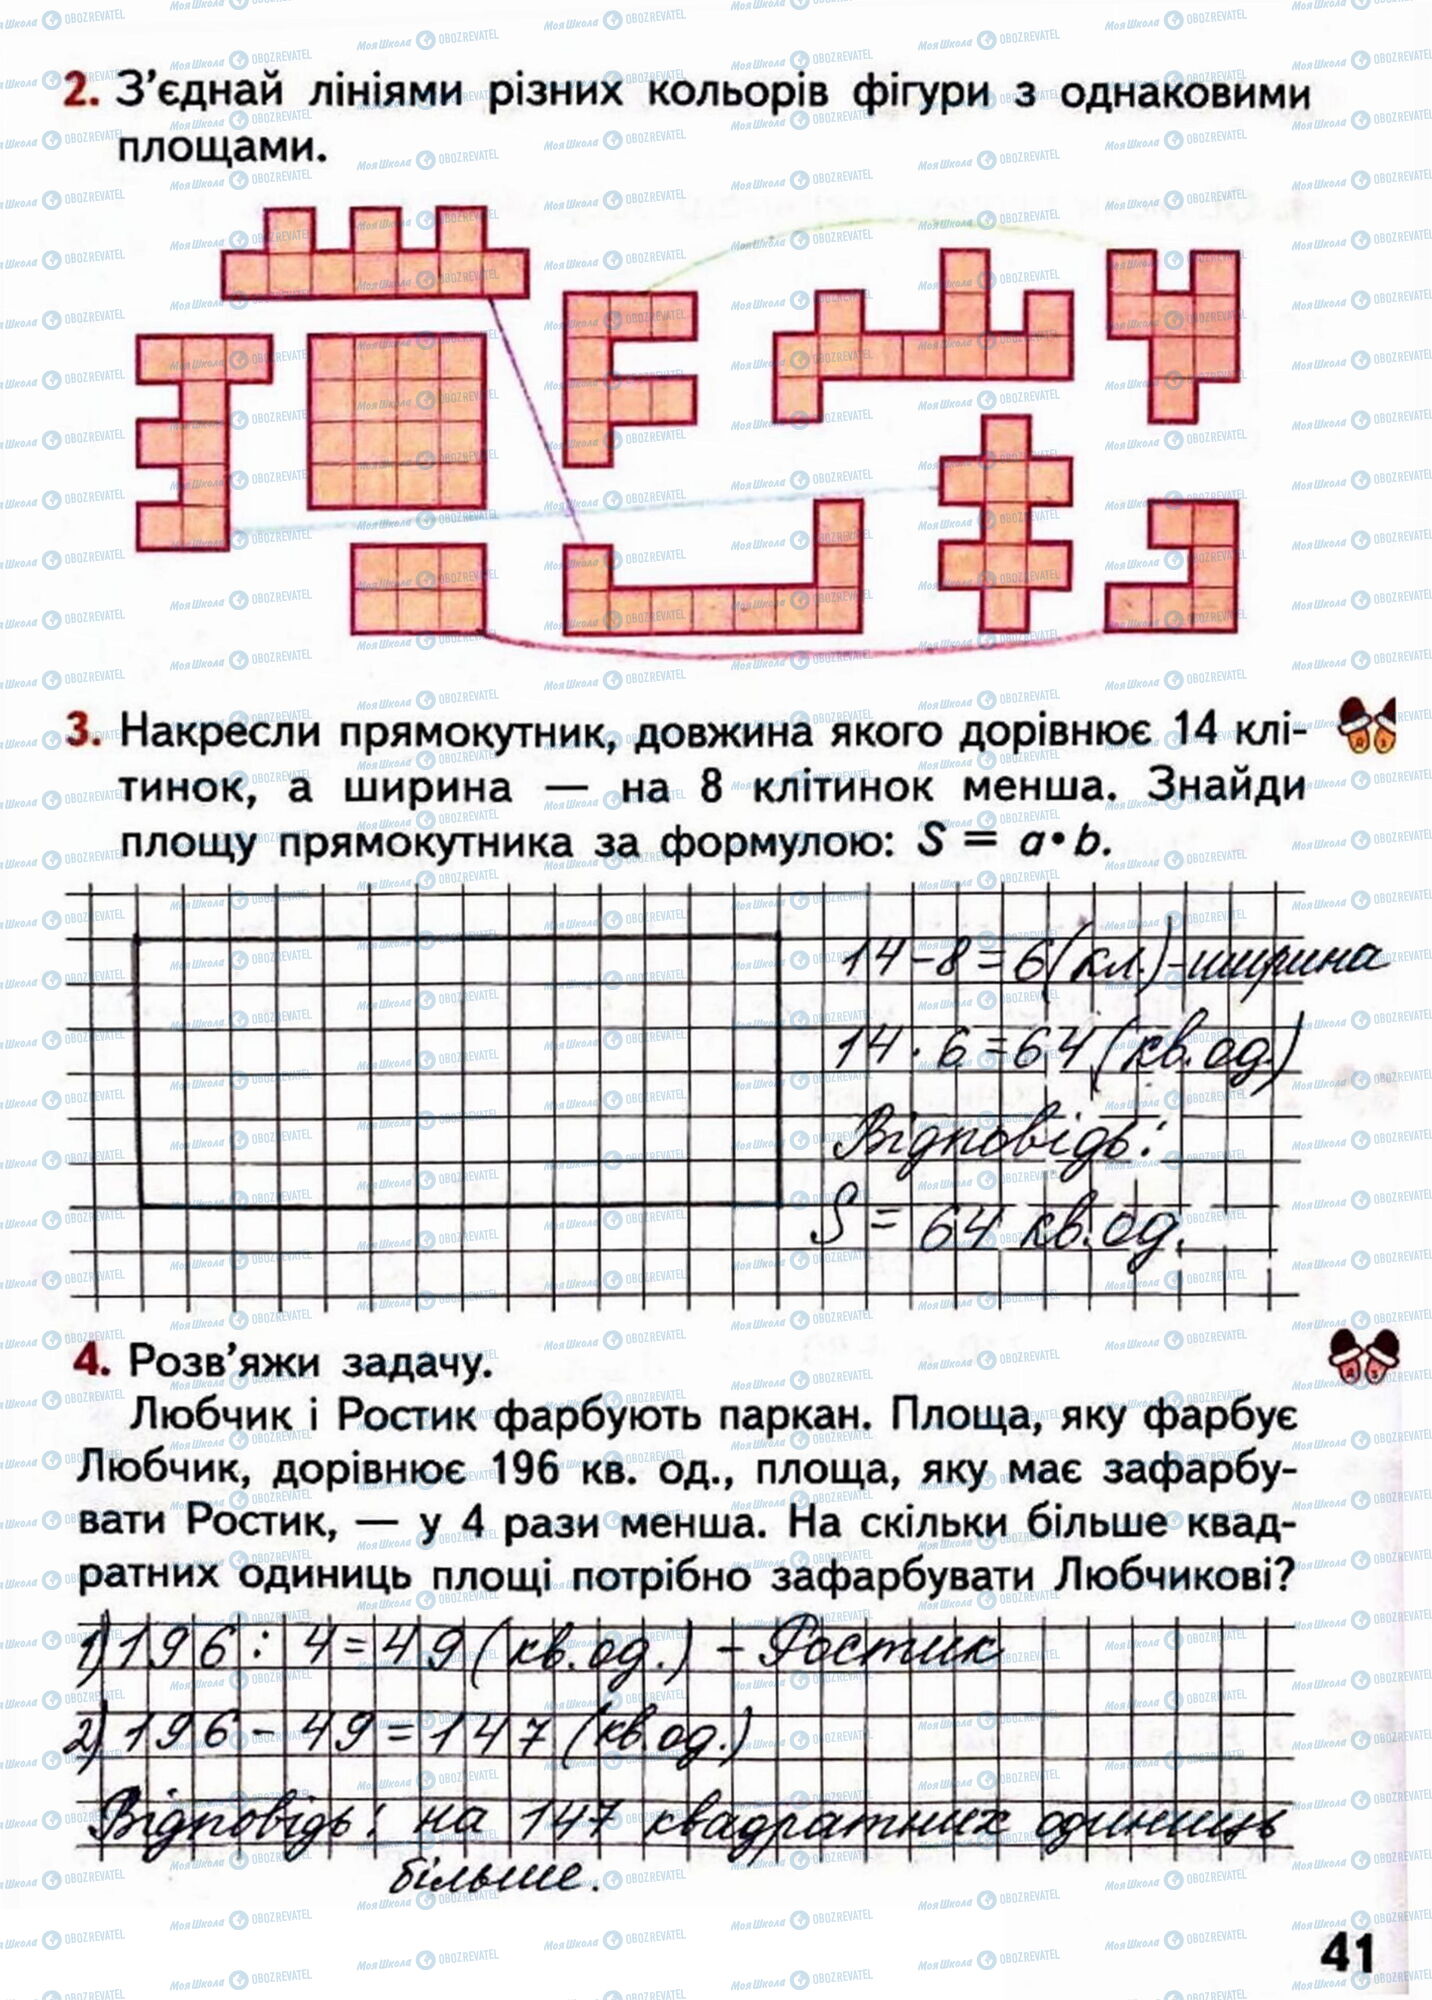 2. З’єднай лініями різних кольорів фігури з однаковими
площами.
3. Накресли прямокутник, довжина якого дорівнює 14 клі-
тинок, а ширина — на 8 клітинок менша. Знайди
площу прямокутника за формулою: S = a•b.
14-8=6(кл.)-ширина
14·6=64(кв.од.)
Відповідь:
S=64 кв.од.
4. Розв’яжи задачу.
Любчик і Ростик фарбують паркан. Площа, яку фарбує
Любчик, дорівнює 196 кв. од., площа, яку має зафарбу-
вати Ростик, — у 4 рази менша. На скільки більше квад-
ратних одиниць площі потрібно зафарбувати Любчикові?
1) 196 : 4=49 (кв.од.) - Ростик
2) 196-49=147 (кв.од.)
Відповідь: на 147 квадратних одиниць
більше.
41
МояШкола OBOZREVATEL